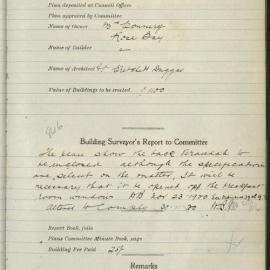 Plan deposited at Council Office
Plan approved by Committee
Name of Owner
Rose Bay
Name of Builder
Name of Architect
Value of Buildings to be erected
Building Surveyor's Report to Committee
The plan show the back Verandah to
be enclosed although the specifications
are silent on the matter, It will be
necessary that it be opened off the Breakfast
room windows
to Comply
Report Book, folio
Plans Committee Minute Book, page
Building Fee Paid 25/-
Remarks